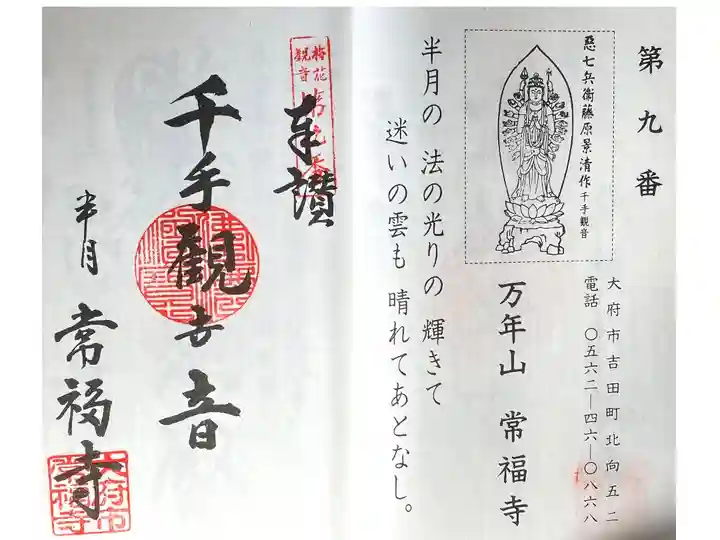 第九番
悪七兵衛藤原景清作
千手観音
大府市吉田町北向五二
電話 〇五六二―四六―〇八六八
万年山 常福寺
半月の 法の光りの 輝きて
迷いの雲も 晴れてあとなし。
梅花
観音
奉讃
千手觀世音
半月 常福寺
大府市
常福寺